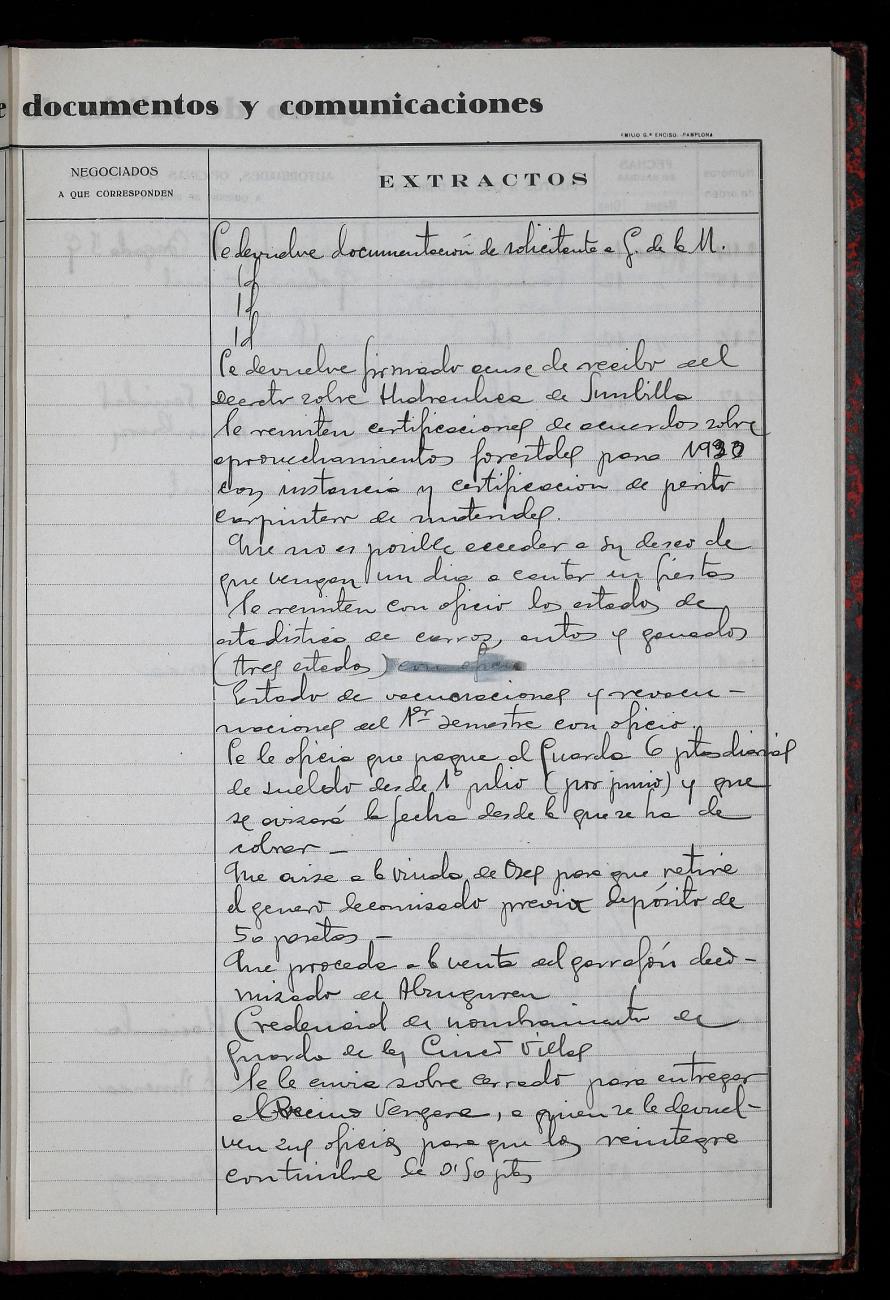 e documentos y comunicaciones
EMILIO G.ª ENCISO.-PAMPLONA
NEGOCIADOS
A QUE CORRESPONDEN
EXTRACTOS
Se devuelve documentación de solicitante a G. de la M.
Id
Id
Id
Se devuelve firmado acuse de recibo del
Decreto sobre Hidraulica de Sunbilla
Se remiten certificaciones de acuerdos sobre
aprovechamientos forestales para 1933
con instancia y certificacion de perito
carpintero de materiales.
Que no es posible acceder a su deseo de
que vengan un dia a cantar en fiestas
Se remiten con oficio los estados de
estadistica de carros, autos y ganados
(tres estados) con oficio
Estado de vacunaciones y revacu-
naciones del 1er semestre con oficio.
Se le oficia que pague al Guarda 6 ptas diarias
de sueldo desde 1º julio (por junio) y que
se avisará la fecha desde la que se ha de
cobrar -
Que avise a la viuda de Oses para que retire
el genero decomisado previo depósito de
50 pesetas -
Que proceda a la venta del garrafón deco-
mizado de
Credencial de nombramiento de
Guarda de las Cinco Villas
Se le envia sobre cerrado para entregar
al Vecino Vergara, a quien se le devuel-
ven sus oficios para que los reintegre
con timbre de 0'50 pts